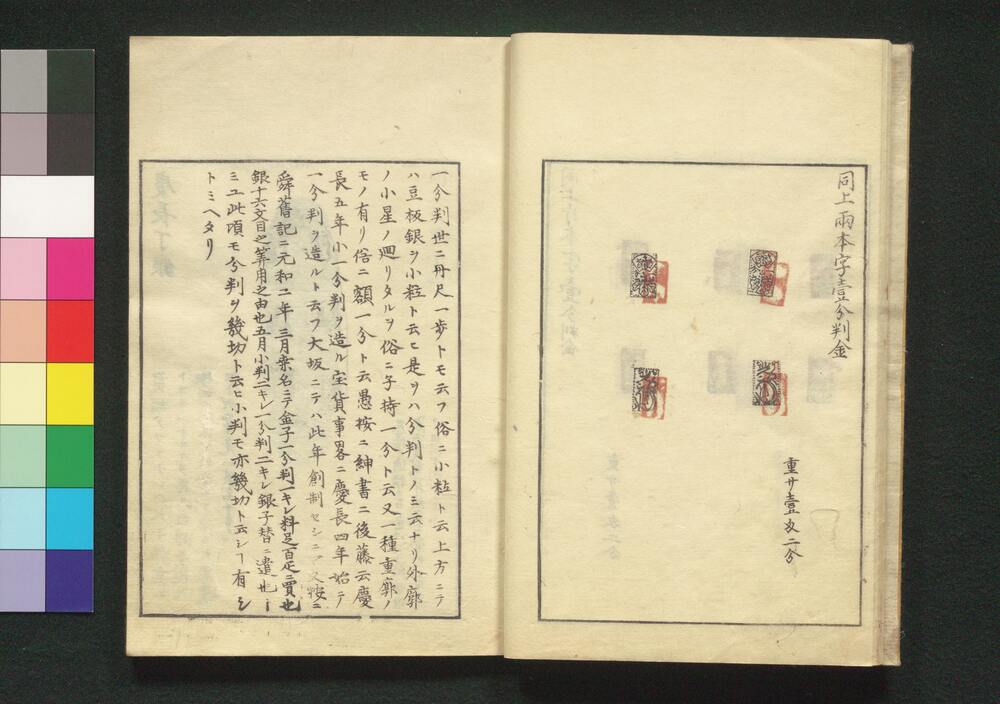 同上 兩本字壹分判金
重サ壹匁二分
一分判世ニ丹尺一歩トモ云フ俗ニ小粒ト云上方ニテ
ハ豆板銀ヲ小粒ト云ヒ是ヲハ分判トノミ云ナリ外廓
ノ小星ノ廻リタルヲ俗ニ子持一分ト云又一種重廓ノ
モノ有リ俗ニ額一分ト云愚按ニ紳書ニ後藤云慶
長五年小一分判ヲ造ル宝貨事畧ニ慶長四年始テ
一分判ヲ造ルト云フ大坂ニテハ此年創制セシニヤ又按ニ
舜舊記ニ元和二年三月桒名ニテ金子一分判一キレ料足百疋ニ買也
銀十六文目之筭用之由也五月小判二キレ一分判二キレ銀子替ニ遣也ト
ミユ此項モ分判ヲ幾切ト云ヒ小判モ亦幾切ト云シヿ有シ
トミヘタリ